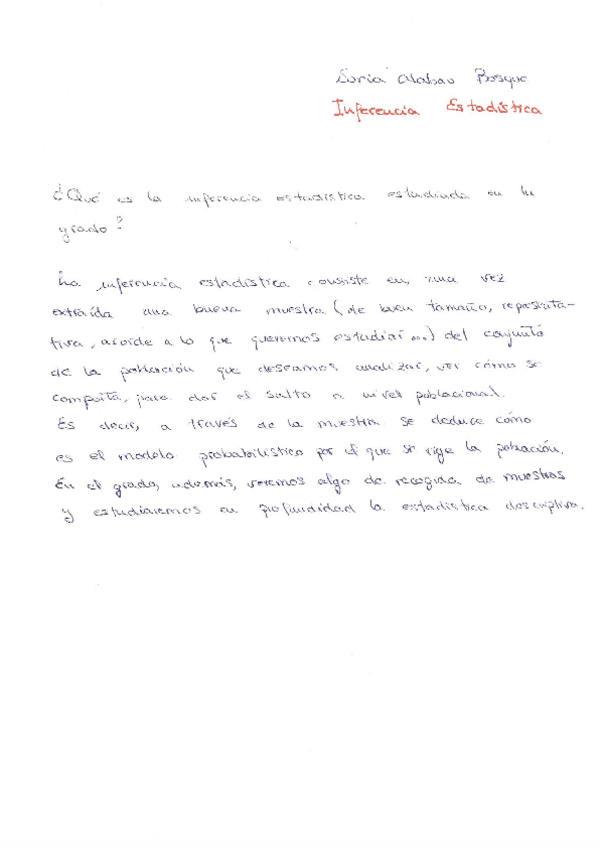 Alabau Bosque
Inferencia Estadística
¿Qué es la inferencia estadística estudiada en tu
grado?
La inferencia estadística consiste en, una vez
extraída una buena muestra (de buen tamaño, representa-
tiva, acorde a lo que queremos estudiar...) del conjunto
de la población que deseamos analizar, ver cómo se
comporta, para dar el salto a nivel poblacional.
Es decir, a través de la muestra se deduce cómo
es el modelo probabilístico por el que se rige la población.
En el grado, además, veremos algo de recogida de muestras
y estudiaremos en profundidad la estadística descriptiva.